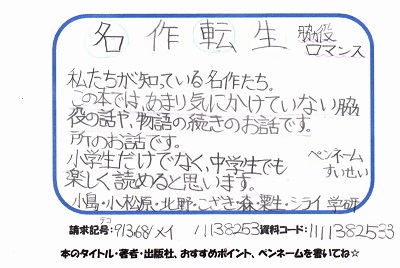 名作転生 脇役ロマンス
私たちが知っている名作たち。
この本では、あまり気にかけていない脇
役の話や、物語の続きのお話です。
所のお話です。
小学生だけでなく、中学生でも
楽しく読めると思います。
ペンネーム
すいせい
小島・小松原・北野・こざき・森・粟生・シライ 学研
請求記号:91368/メイ 111382533資料コード:1111382533
本のタイトル・著者・出版社、おすすめポイント、ペンネームを書いてね☆